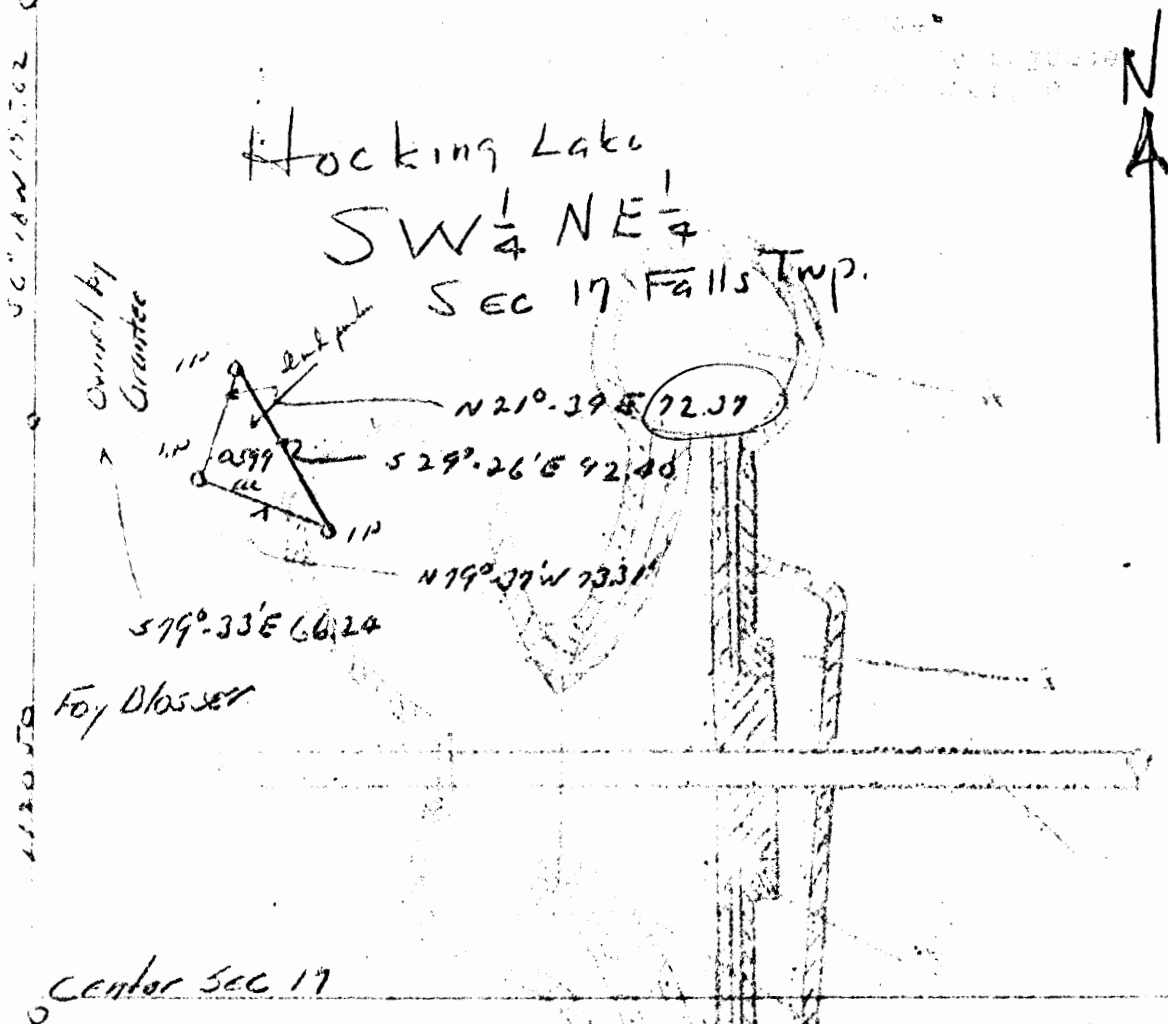 N
Hocking Lake
SW 1/4 NE 1/4
Sec 17 Falls Twp.
Owned by
Grantee
IP
N 21°-39 E 72.37
IP
S 29°-26' E 92.40
IP
N 79°-37' W 73.31'
S 79°-33' E 66.24
Foy Blosser
Center Sec 17